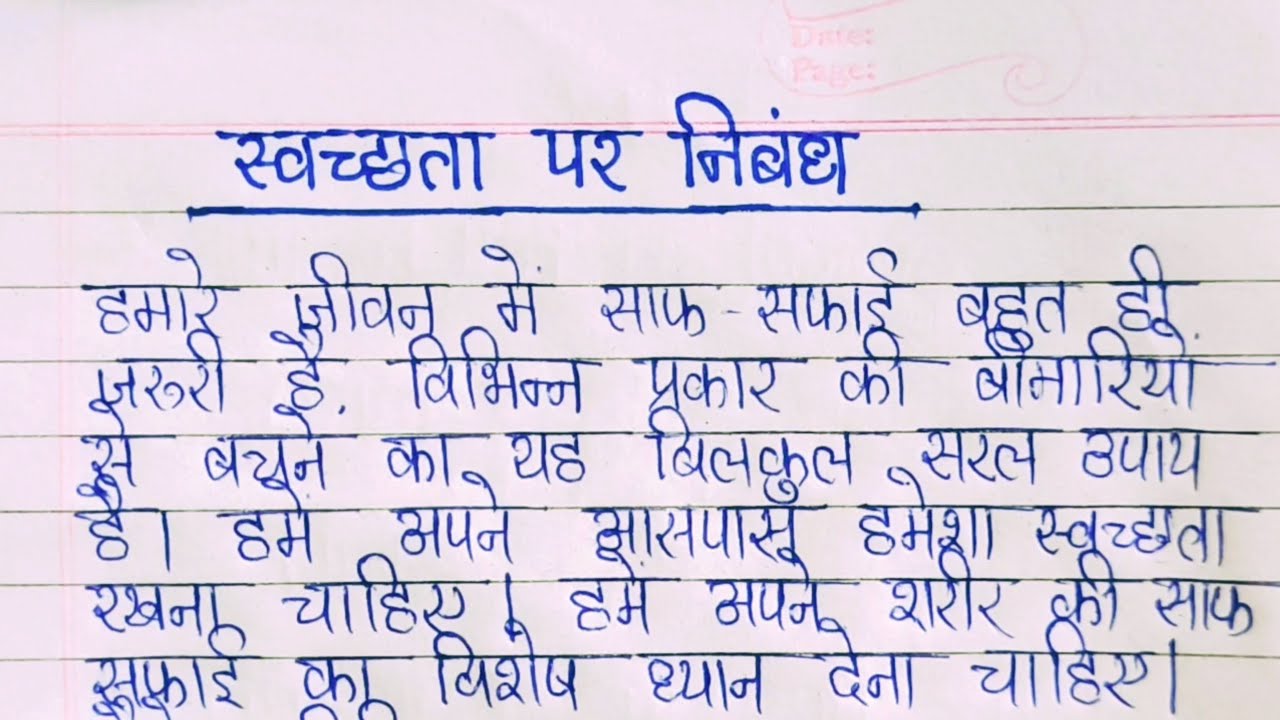 Date:
Page:
स्वच्छता पर निबंध
हमारे जीवन में साफ-सफाई बहुत ही
जरूरी है. विभिन्न प्रकार की बीमारियों
से बचने का यह बिलकुल सरल उपाय
है। हमें अपने आसपास हमेशा स्वच्छता
रखना चाहिए। हमें अपने शरीर की साफ
सफाई का विशेष ध्यान देना चाहिए।